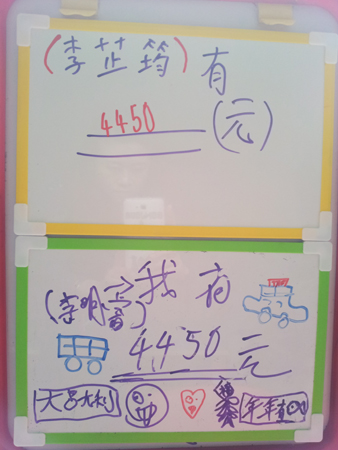 (李芷筠)有
4450(元)
(李明蓉)→我有
4450元
大吉大利 年年